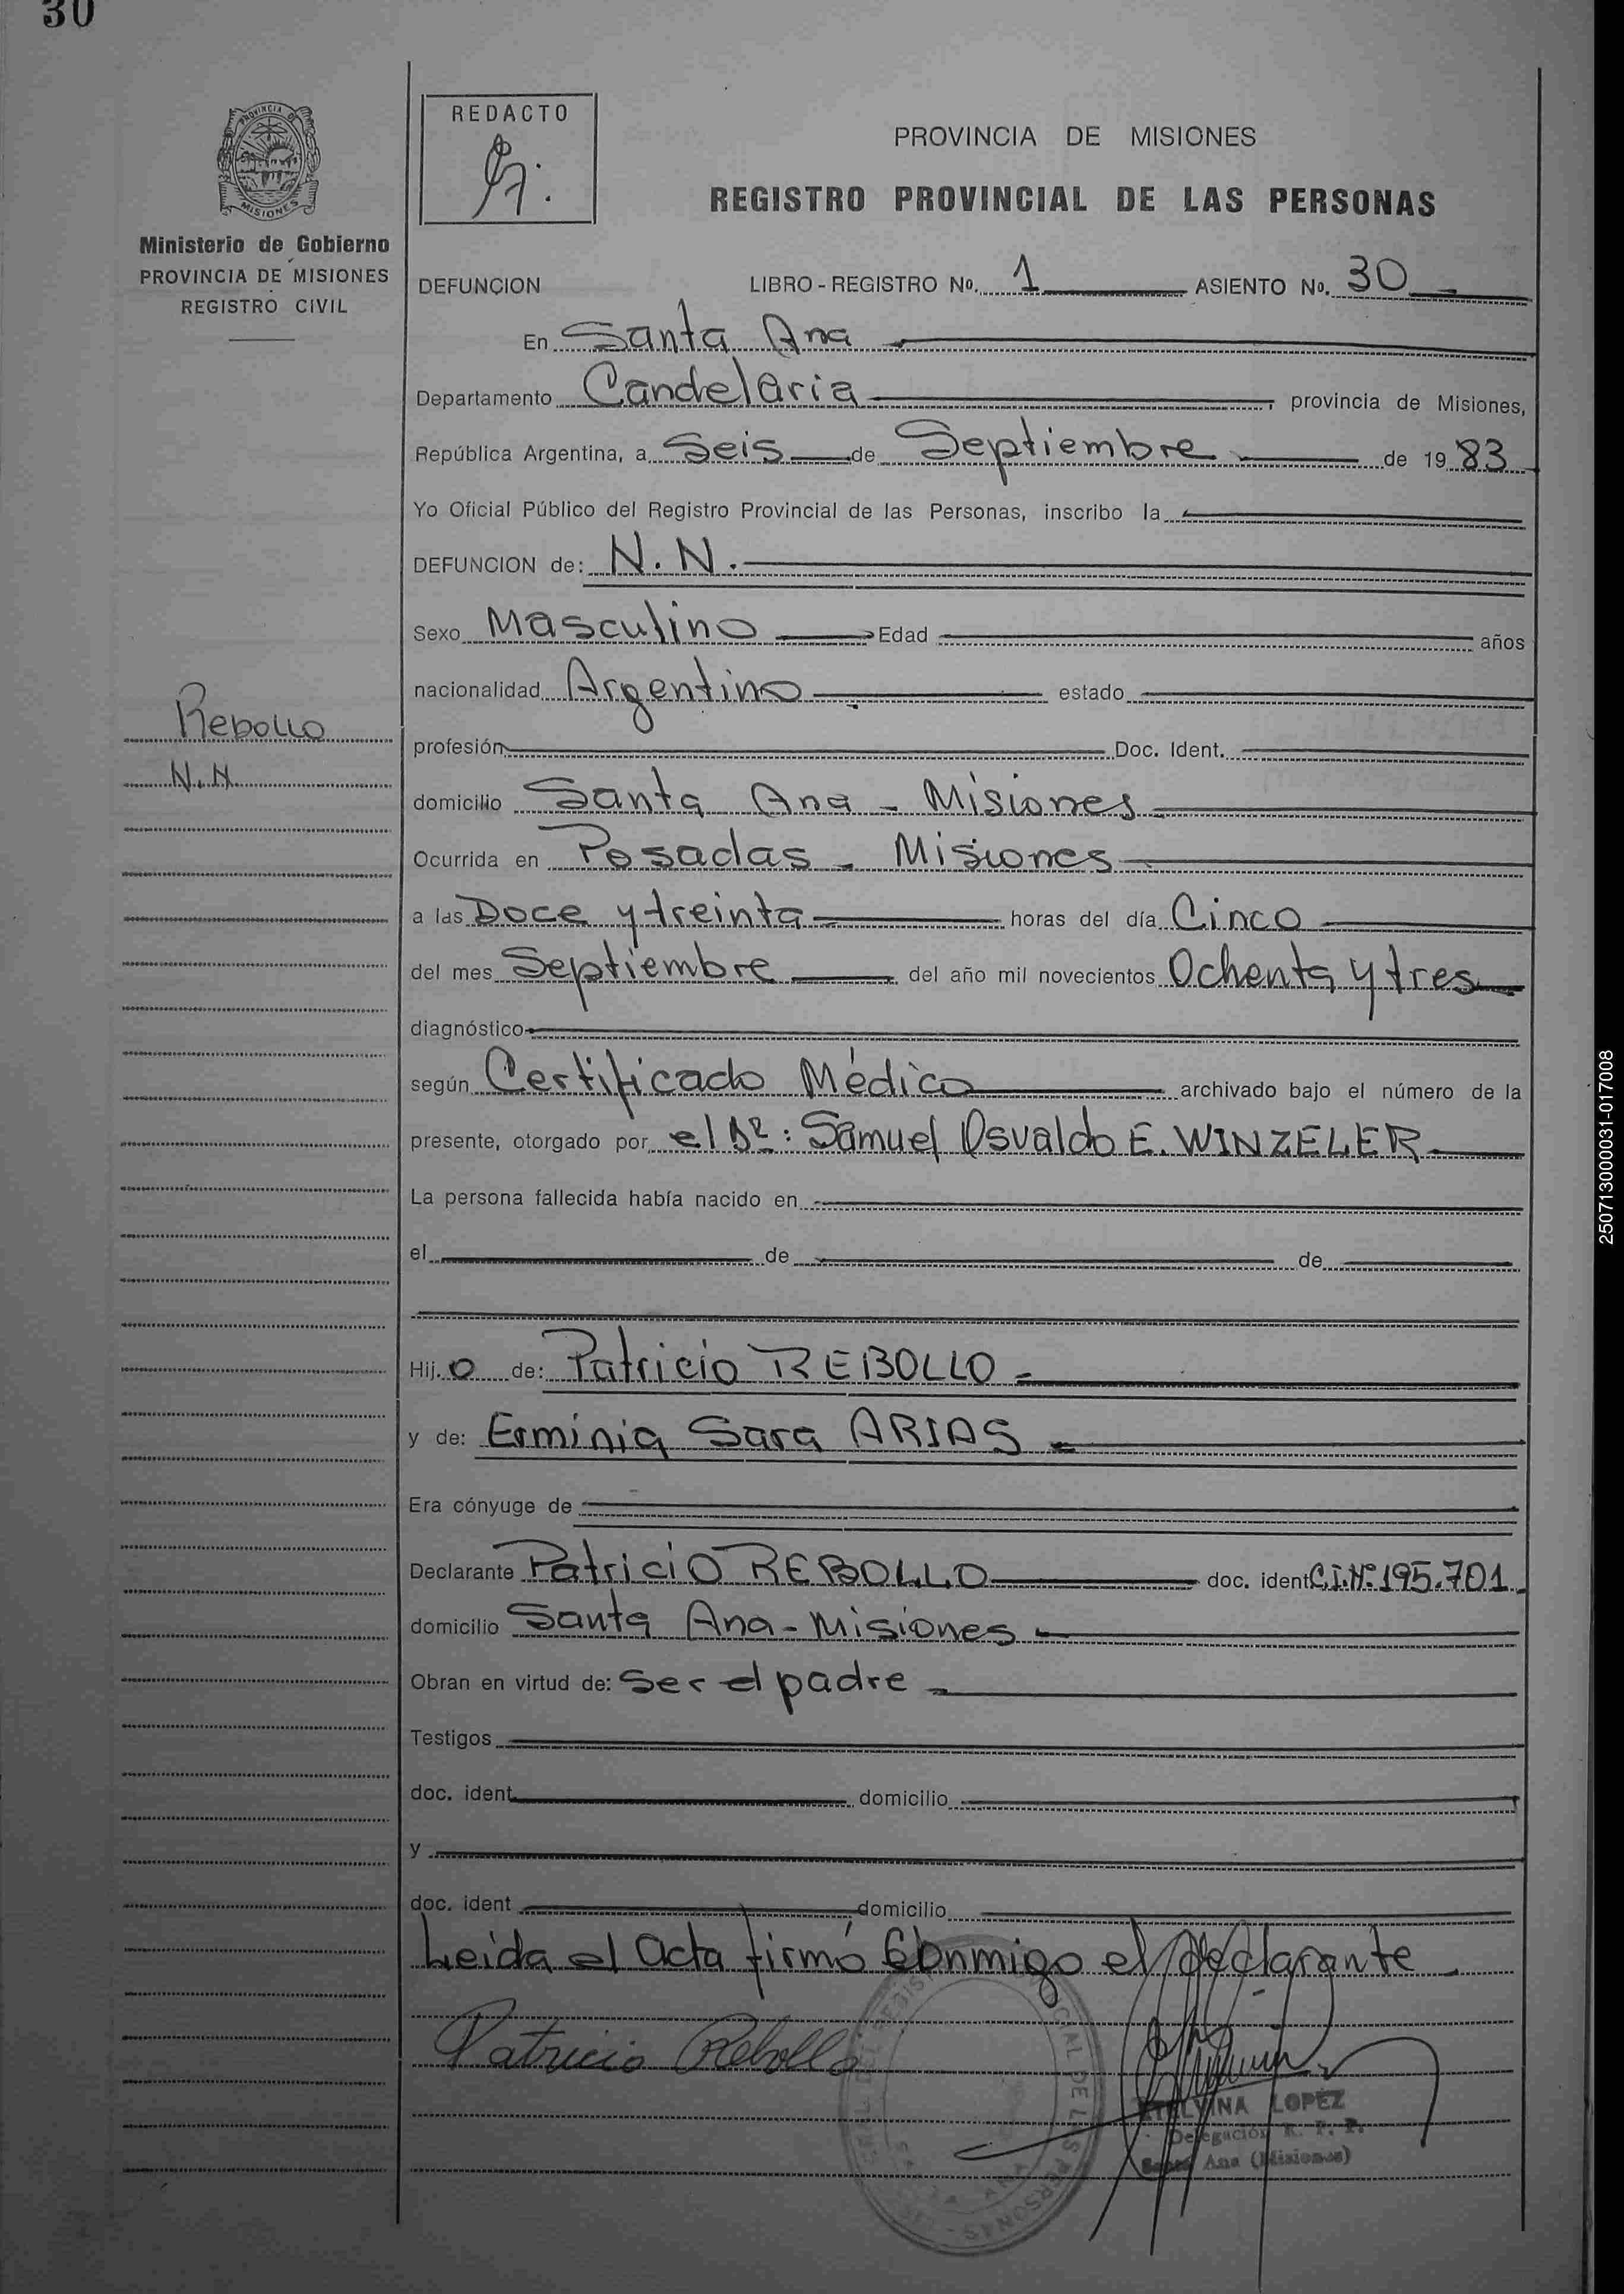 30
PROVINCIA DE
MISIONES
Ministerio de Gobierno
PROVINCIA DE MISIONES
REGISTRO CIVIL
REDACTO
PROVINCIA DE MISIONES
REGISTRO PROVINCIAL DE LAS PERSONAS
DEFUNCION LIBRO - REGISTRO Nº. 1 ASIENTO Nº. 30
En Santa Ana
Departamento Candelaria , provincia de Misiones,
República Argentina, a Seis de Septiembre de 19 83
Yo Oficial Público del Registro Provincial de las Personas, inscribo la
DEFUNCION de: N.N.
Sexo Masculino Edad años
nacionalidad Argentino estado
Rebollo
N.N.
profesión Doc. Ident.
domicilio Santa Ana - Misiones
Ocurrida en Posadas - Misiones
a las Doce y treinta horas del día Cinco
del mes Septiembre del año mil novecientos Ochenta y tres
diagnóstico
según Certificado Médico archivado bajo el número de la
presente, otorgado por el Dr: Samuel Osvaldo E. WINZELER
La persona fallecida había nacido en
el de de
Hij o de: Patricio REBOLLO
y de: Erminia Sara ARIAS
Era cónyuge de
Declarante Patricio REBOLLO doc. ident C.I.Nº 195.701
domicilio Santa Ana - Misiones
Obran en virtud de: Ser el padre
Testigos
doc. ident domicilio
y
doc. ident domicilio
Leida el Acta firmó Conmigo el declarante
Patricio Rebollo
LOPEZ
Delegación R. P. P.
Santa Ana (Misiones)
250713000031-017008